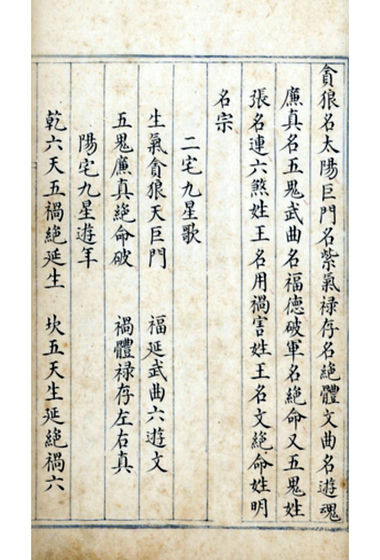 貪狼名太陽巨門名紫氣禄存名絕體文曲名遊魂
廉真名五鬼武曲名福德破軍名絕命又五鬼姓
張名連六煞姓王名用禍害姓王名文絕命姓明
名宗
二宅九星歌
生氣貪狼天巨門　福延武曲六遊文
五鬼廉真絕命破　禍體禄存左右真
陽宅九星遊年
乾六天五禍絕延生　坎五天生延絕禍六